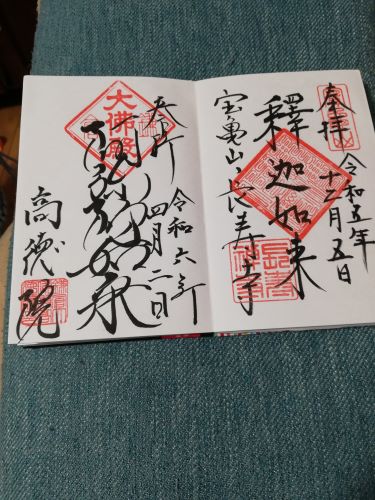 奉拝
令和五年
十二月五日
釋迦如来
宝亀山
長寿寺
奉拝
令和六年
四月二日
大佛殿
阿弥陀如来
高徳院